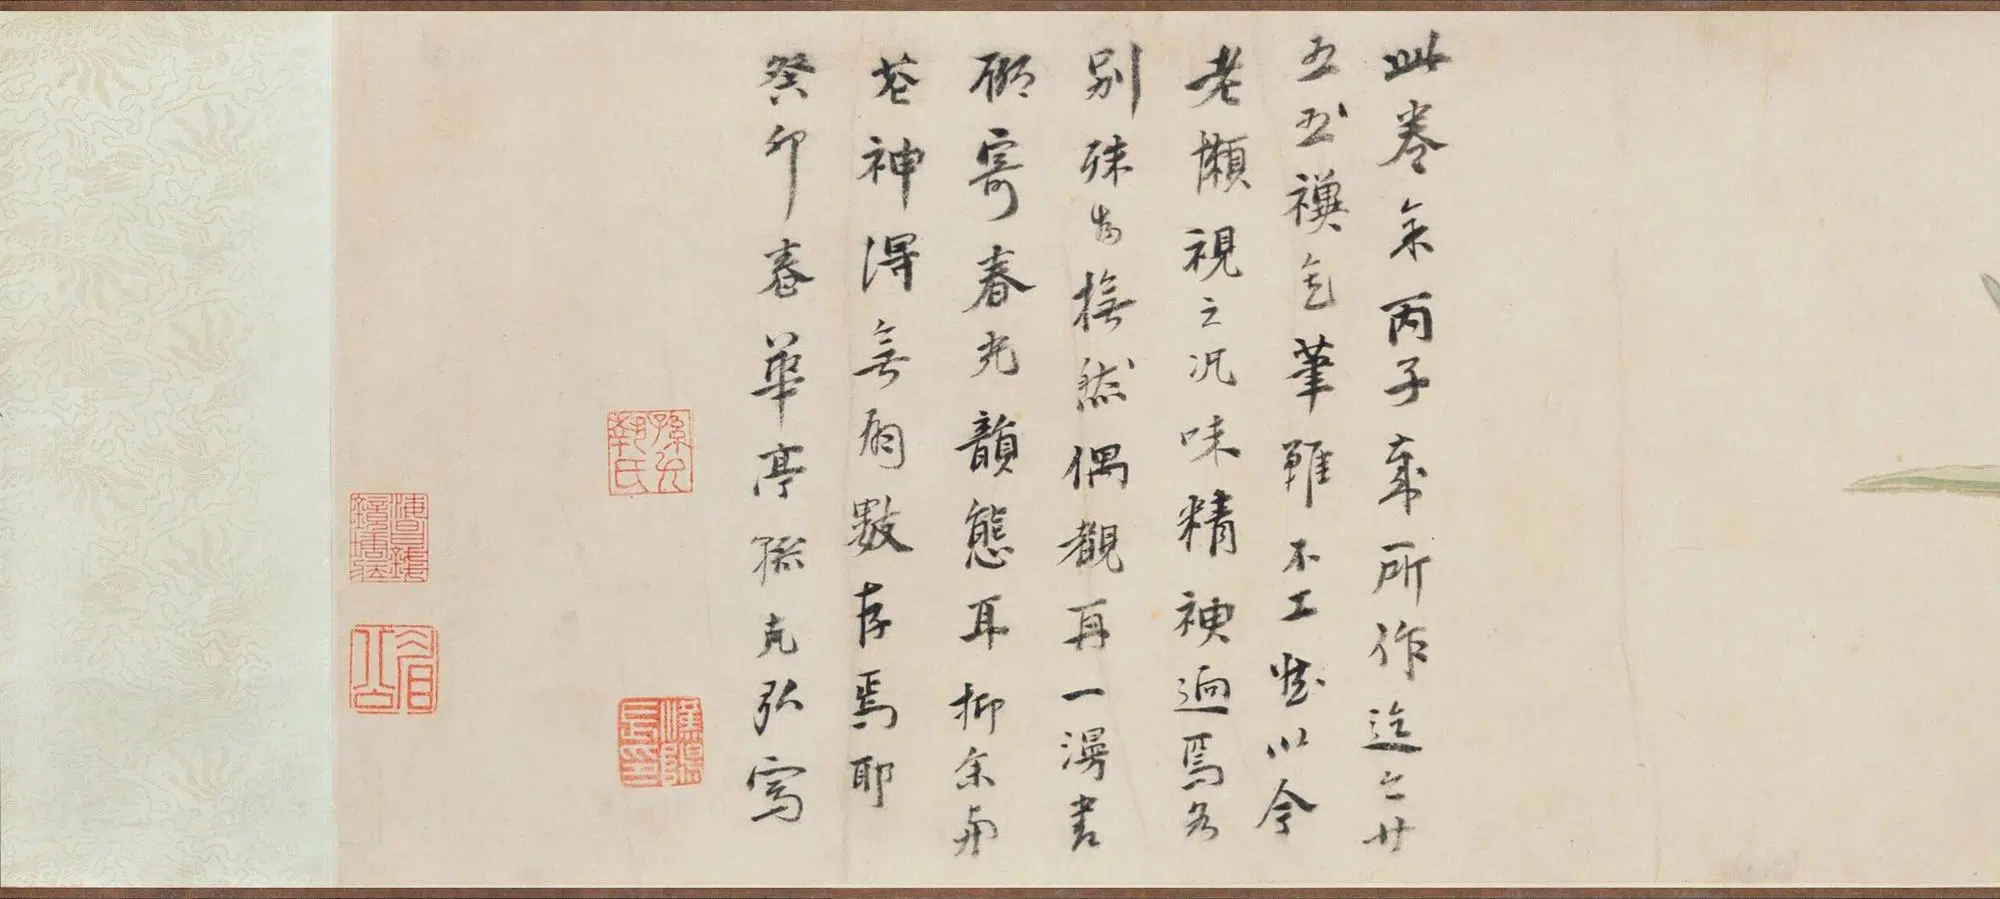 此卷余丙子歲所作迄今廿
五五禩筆雖不工以今
老懶視之況味精神迥焉各
别殊為撫然偶觀再一漫書
聊寄春光韻態耳抑余與
花神得無夙數存焉耶
癸卯春華亭孫克弘寫
孫允執氏
眉公